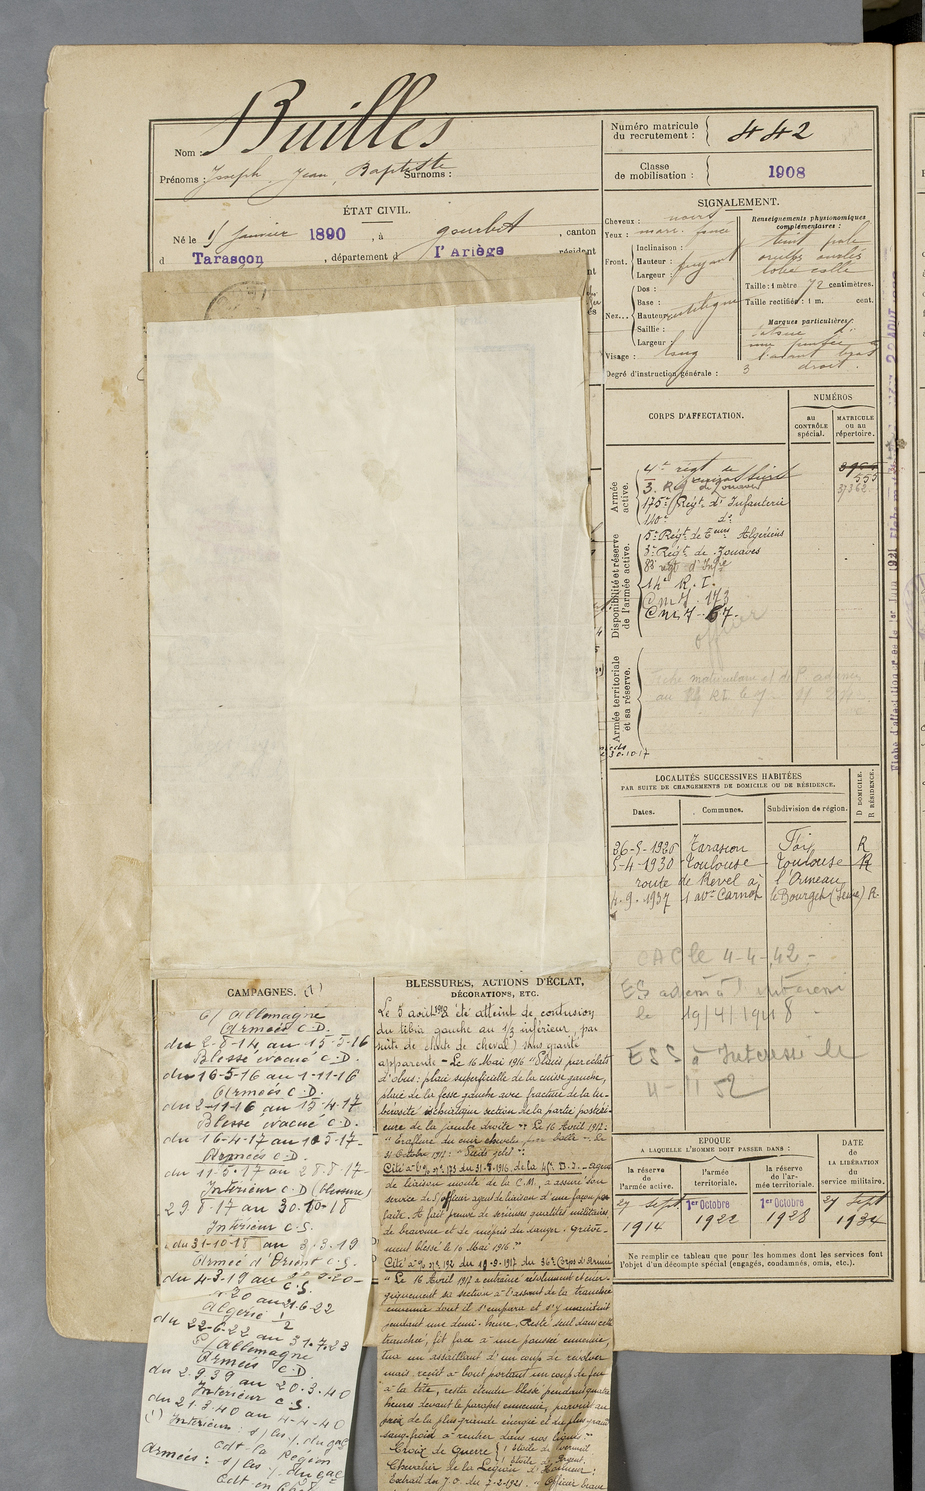 Nom : Builles
Prénoms : Joseph, Jean, Baptiste Surnoms :
Numéro matricule du recrutement : 442
Classe de mobilisation : 1908
ÉTAT CIVIL.
Né le 15 janvier 1890, à Gourbit, canton
d Tarascon, département d l'Ariège résident
SIGNALEMENT.
Cheveux : noirs
Yeux : marr. foncé
Front. Inclinaison :
Hauteur : fuyant
Largeur :
Nez... Dos :
Base :
Hauteur rectiligne
Saillie :
Largeur :
Visage : long
Degré d'instruction générale : 3
Renseignements physionomiques complémentaires :
teint pale
oreilles
lobe collé
Taille : 1 mètre 72 centimètres.
Taille rectifiée : 1 m. cent.
Marques particulières :
une pensée à
l'avant bras
droit.
CORPS D'AFFECTATION.
NUMÉROS
au CONTRÔLE spécial.
MATRICULE ou au répertoire.
Armée active.
4e régt de
3e Rég de Zouaves
175e Régt d'Infanterie
140e do
555
Disponibilité et réserve de l'armée active.
5e Régt de Tirailleurs Algériens
3e Régt de Zouaves
83 régt d'Infie
14e R. I.
C.M.I. 173
C.M.I. 67.
officier
Armée territoriale et sa réserve.
30-10-17
LOCALITÉS SUCCESSIVES HABITÉES
PAR SUITE DE CHANGEMENTS DE DOMICILE OU DE RÉSIDENCE.
Dates. Communes. Subdivision de région. D DOMICILE. R RÉSIDENCE.
26-5-1926 Tarascon Foix R
5-4-1930 Toulouse Toulouse R
route de Revel à l'Ormeau
4-9-1937 1 avue Carnot le Bourget (Seine) R.
CAC le 4-4-42
le 19/4/1948
ESS à Intéressé le
4-11 52
EPOQUE
A LAQUELLE L'HOMME DOIT PASSER DANS :
la réserve de l'armée active.
l'armée territoriale.
la réserve de l'armée territoriale.
DATE DE LA LIBÉRATION du service militaire.
27 Sept 1914
1er Octobre 1922
1er Octobre 1928
27 Sept 1934
Ne remplir ce tableau que pour les hommes dont les services font
l'objet d'un décompte spécial (engagés, condamnés, omis, etc.).
CAMPAGNES. (1)
C/ Allemagne
Armées C.D.
du 2-8-14 au 15-5-16
Blessé évacué C.D.
du 16-5-16 au 1-11-16
Armées C.D.
du 2-11-16 au 15-4-17
Blessé évacué C.D.
du 16-4-17 au 10-5-17
Armées C.D.
du 11-5-17 au 28-8-17
Intérieur C.D (blessure)
29-8-17 au 30-10-18
Intérieur C.S.
du 31-10-18 au 3-3-19
Armée d'Orient C.S.
du 4-3-19 au
C.S.
20 au 21-6-22
Algérie 1/2
du 22-6-22 au 31-7-23
C/ Allemagne
Armées C.D.
du 2.9.39 au 20.3.40
Intérieur C.S.
du 21.3.40 au 4-4-40
(1) Intérieur s/ les
cdt la Région
Armées : s/ les
Cdt en Chef
BLESSURES, ACTIONS D'ÉCLAT,
DÉCORATIONS, ETC.
Le 5 août 1912 été atteint de contusion
du tibia gauche au 1/3 inférieur, par
suite de chute de cheval, sans gravité
apparente - Le 16 Mai 1916 "Plaies par éclats
d'obus : plaie superficielle de la cuisse gauche,
plaie de la fesse gauche avec fracture de la tu-
bérosité ischiatique section de la partie postéri-
eure de la jambe droite". Le 16 Avril 1917 :
"Eraflure du cuir chevelu par balle". Le
31 Octobre 1917 : "Pieds gelés".
Cité à l'o no 173 du 31-8-1916, de la 45e D.I. - agent
de liaison monté de la C.M., a assuré son
service de S/officier agent de liaison d'une façon par
faite. A fait preuve de sérieuses qualités militaires
de bravoure et de mépris du danger. Griève-
ment blessé le 16 Mai 1916."
Cité à l'o no 192 du 19-9-1917 du 36e Corps d'Armée
"Le 16 Avril 1917 a entrainé résolument et éner-
giquement sa section à l'assaut de la tranchée
ennemie dont il s'empara et s'y maintint
pendant une demi-heure. Resté seul dans cette
tranchée, fit face à une poussée ennemie,
tua un assaillant d'un coup de revolver
mais reçut à bout portant un coup de feu
à la tête, resta étendu blessé pendant quatre
heures devant le parapet ennemi, parvint au
prix de la plus grande énergie et du plus grand
sang-froid à rentrer dans nos lignes."
Croix de Guerre 1 étoile de Vermeil
1 étoile d'Argent.
Chevalier de la Légion d'Honneur :
Extrait du J.O. du 7-2-1921. "Officier brave